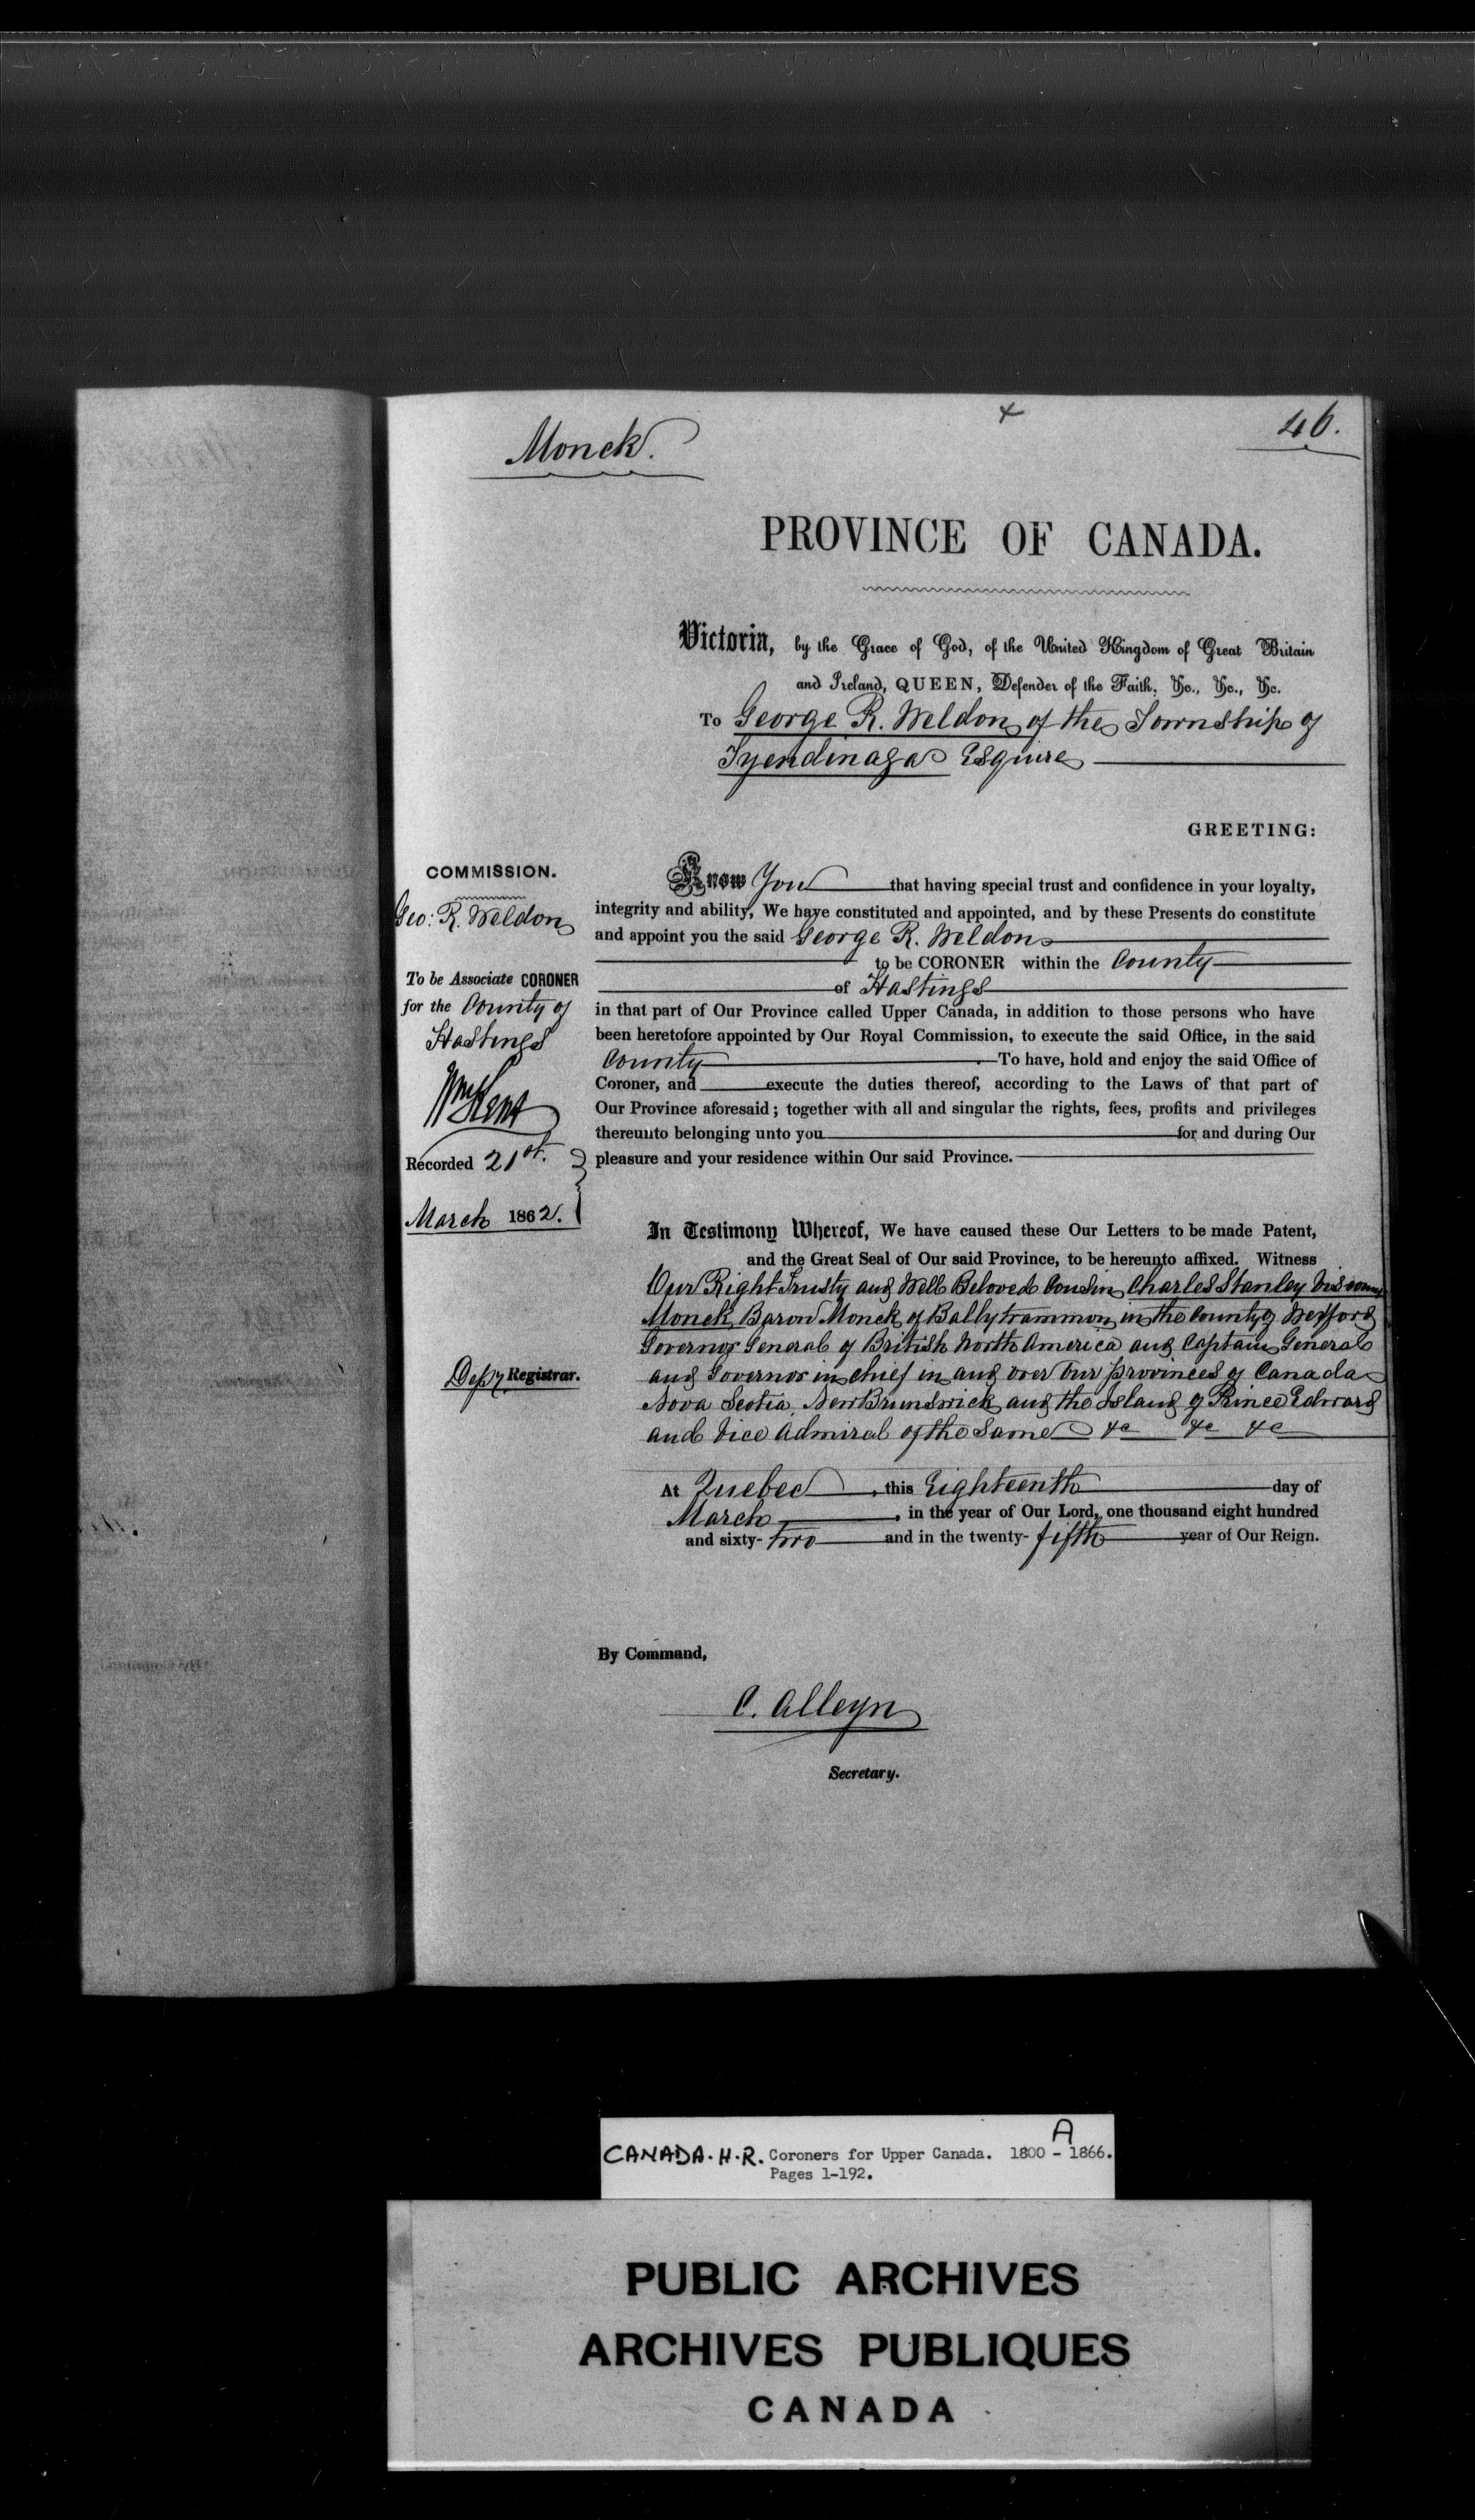 Monck.
+
46.
PROVINCE OF CANADA.
Victoria, by the Grace of God, of the United Kingdom of Great Britain
and Ireland, QUEEN, Defender of the Faith, &c., &c., &c.
To George R. Weldon of the Township of
Tyendinaga Esquire
GREETING:
COMMISSION.
Geo: R. Weldon
To be Associate CORONER
for the County of
Hastings
Wm Kent
Recorded 21st.
March 1862.
Depy Registrar.
Know You that having special trust and confidence in your loyalty,
integrity and ability, We have constituted and appointed, and by these Presents do constitute
and appoint you the said George R. Weldon
to be CORONER within the County
of Hastings
in that part of Our Province called Upper Canada, in addition to those persons who have
been heretofore appointed by Our Royal Commission, to execute the said Office, in the said
County To have, hold and enjoy the said Office of
Coroner, and execute the duties thereof, according to the Laws of that part of
Our Province aforesaid; together with all and singular the rights, fees, profits and privileges
thereunto belonging unto you for and during Our
pleasure and your residence within Our said Province.
In Testimony Whereof, We have caused these Our Letters to be made Patent,
and the Great Seal of Our said Province, to be hereunto affixed. Witness
Our Right Trusty and Well Beloved Cousin Charles Stanley Viscount
Monck, Baron Monck of Ballytrammon in the County of Wexford
Governor General of British North America and Captain General
and Governor in chief in and over Our provinces of Canada
Nova Scotia, New Brunswick and the Island of Prince Edward
and Vice Admiral of the Same &c &c &c
At Quebec, this Eighteenth day of
March, in the year of Our Lord, one thousand eight hundred
and sixty-two and in the twenty-fifth year of Our Reign.
By Command,
C. Alleyn
Secretary.
CANADA. H.R. Coroners for Upper Canada. 1800 - 1866. A
Pages 1-192.
PUBLIC ARCHIVES
ARCHIVES PUBLIQUES
CANADA